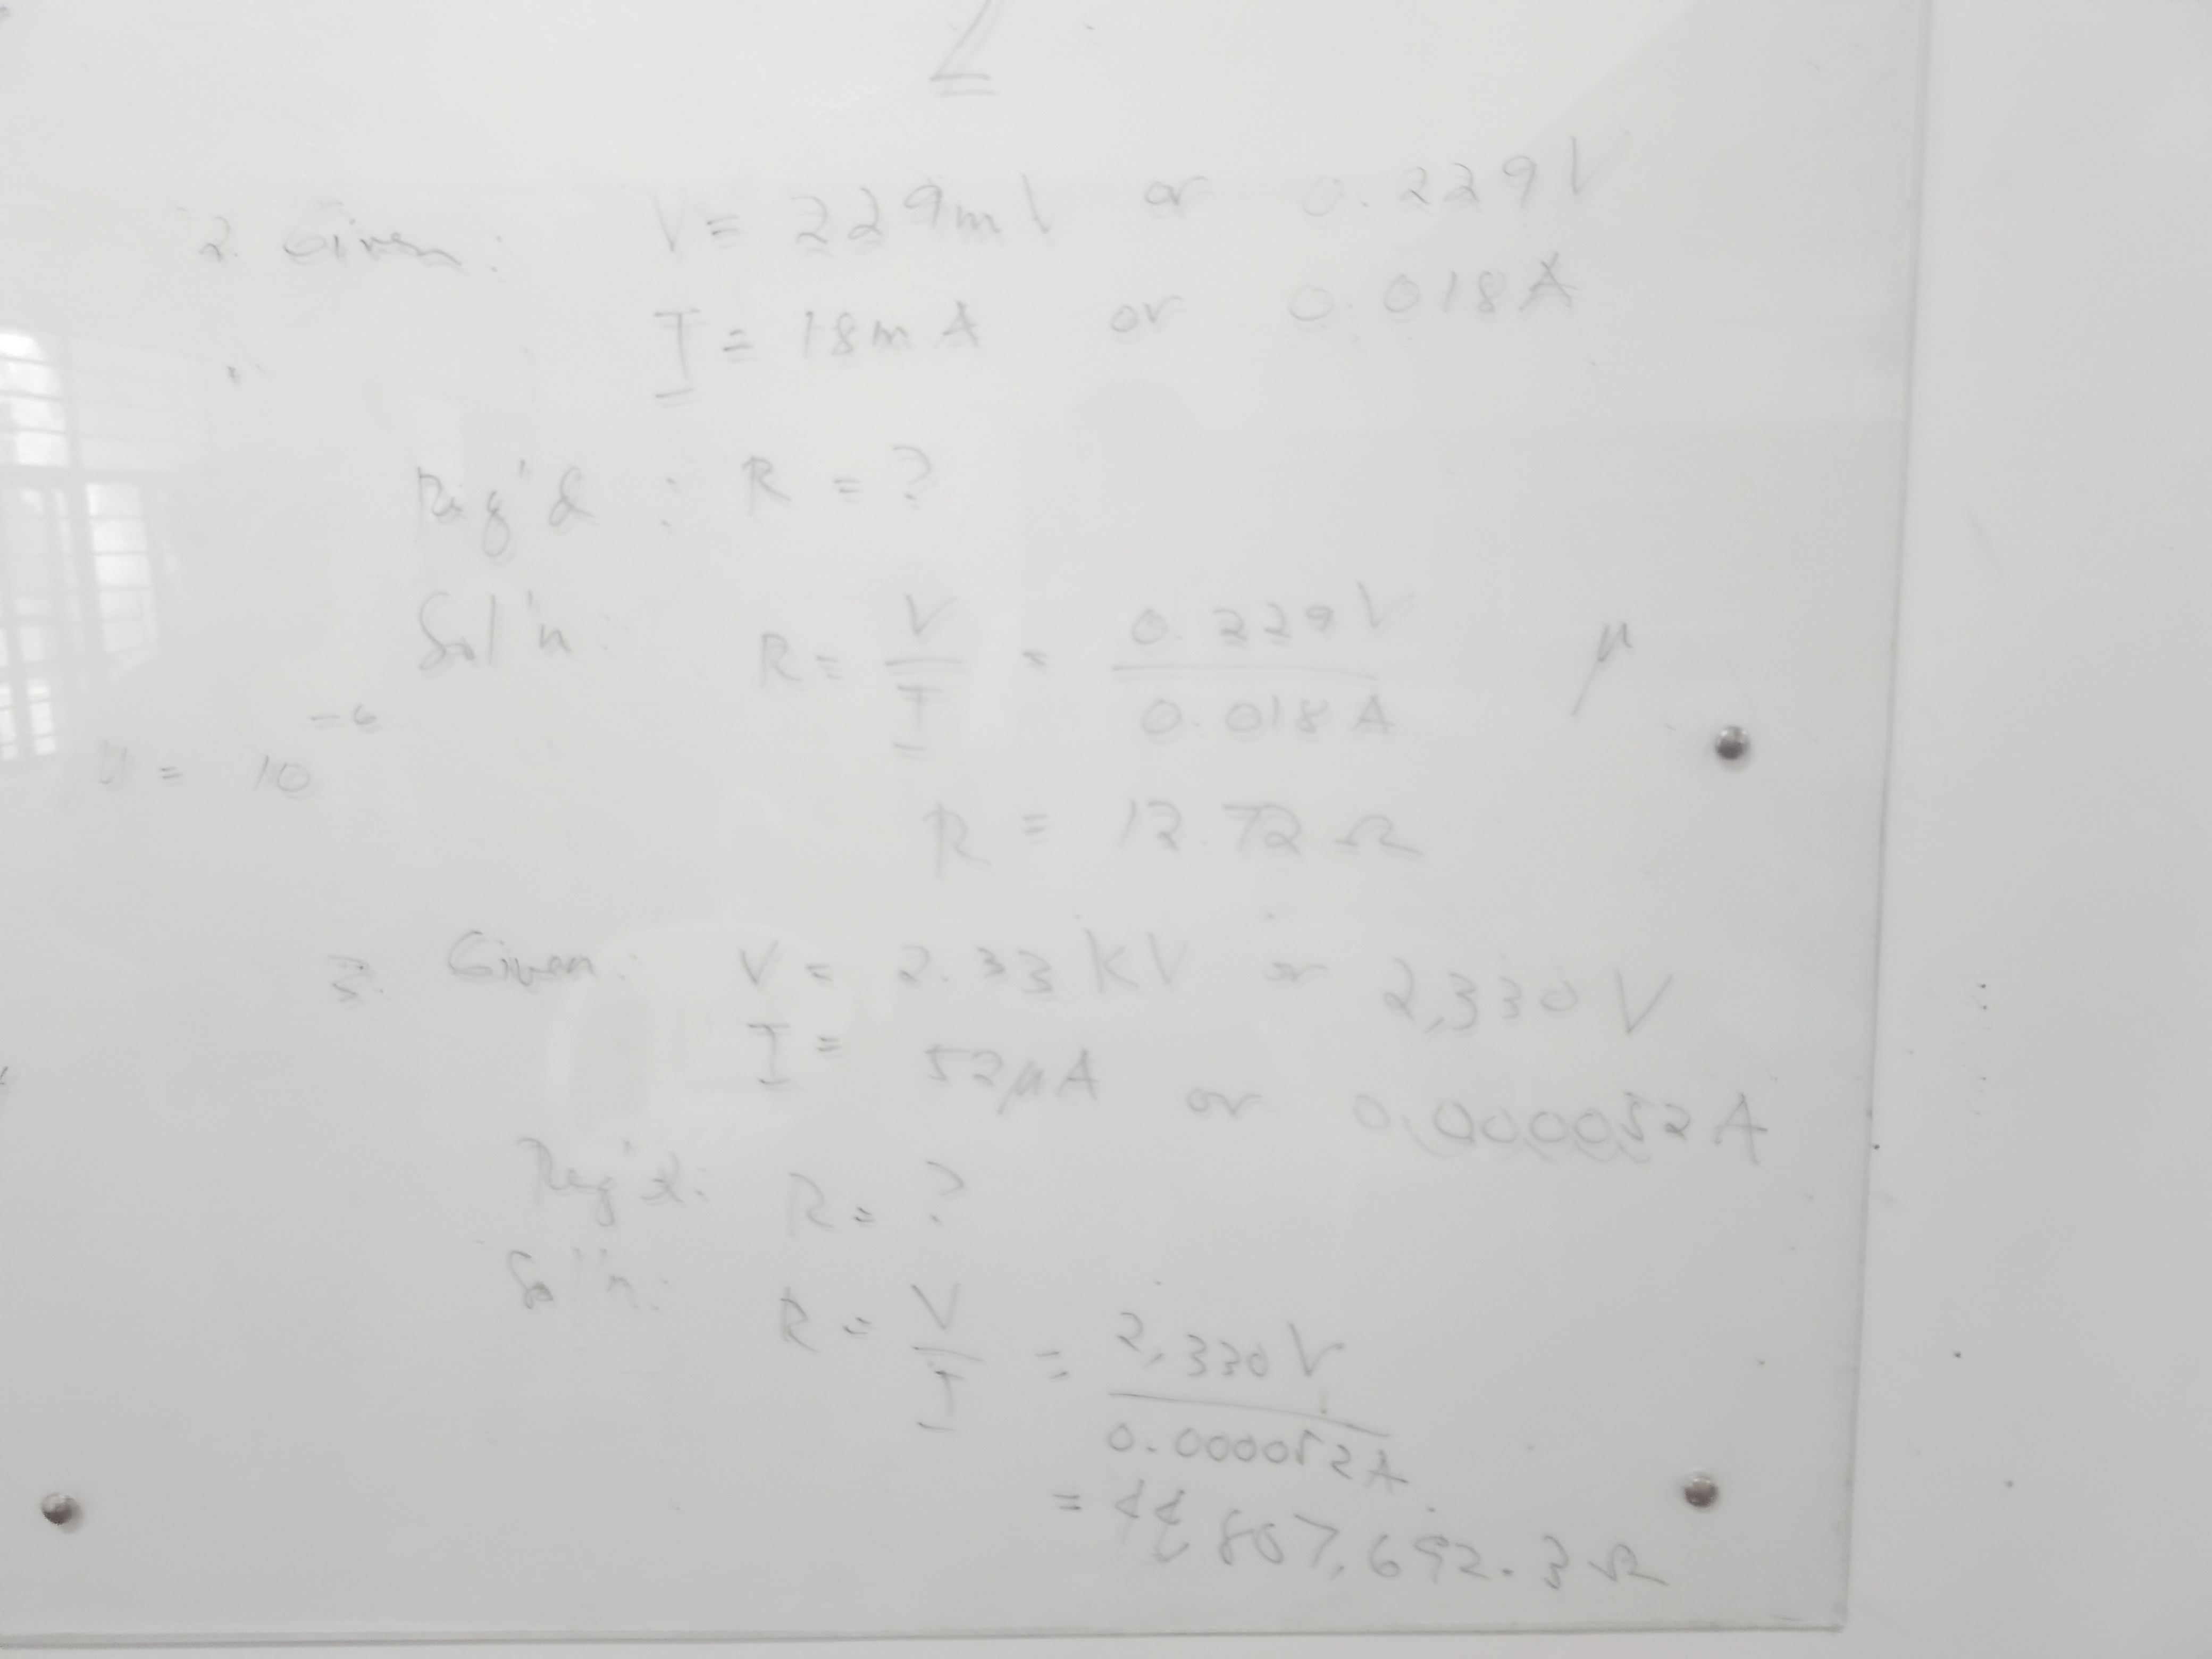 2
2. Given: V = 229mV or 0.229V
I = 18mA or 0.018A
Req'd : R = ?
Sol'n: R = V/I = 0.229V/0.018A
μ
μ = 10^-6
R = 12.72 Ω
3. Given: V = 2.33 KV or 2,330 V
I = 52μA or 0.000052A
Req'd: R = ?
Sol'n: R = V/I = 2,330V/0.000052A
= 44,807,692.3 Ω